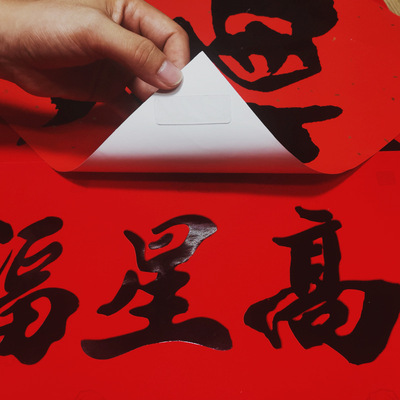 福星高